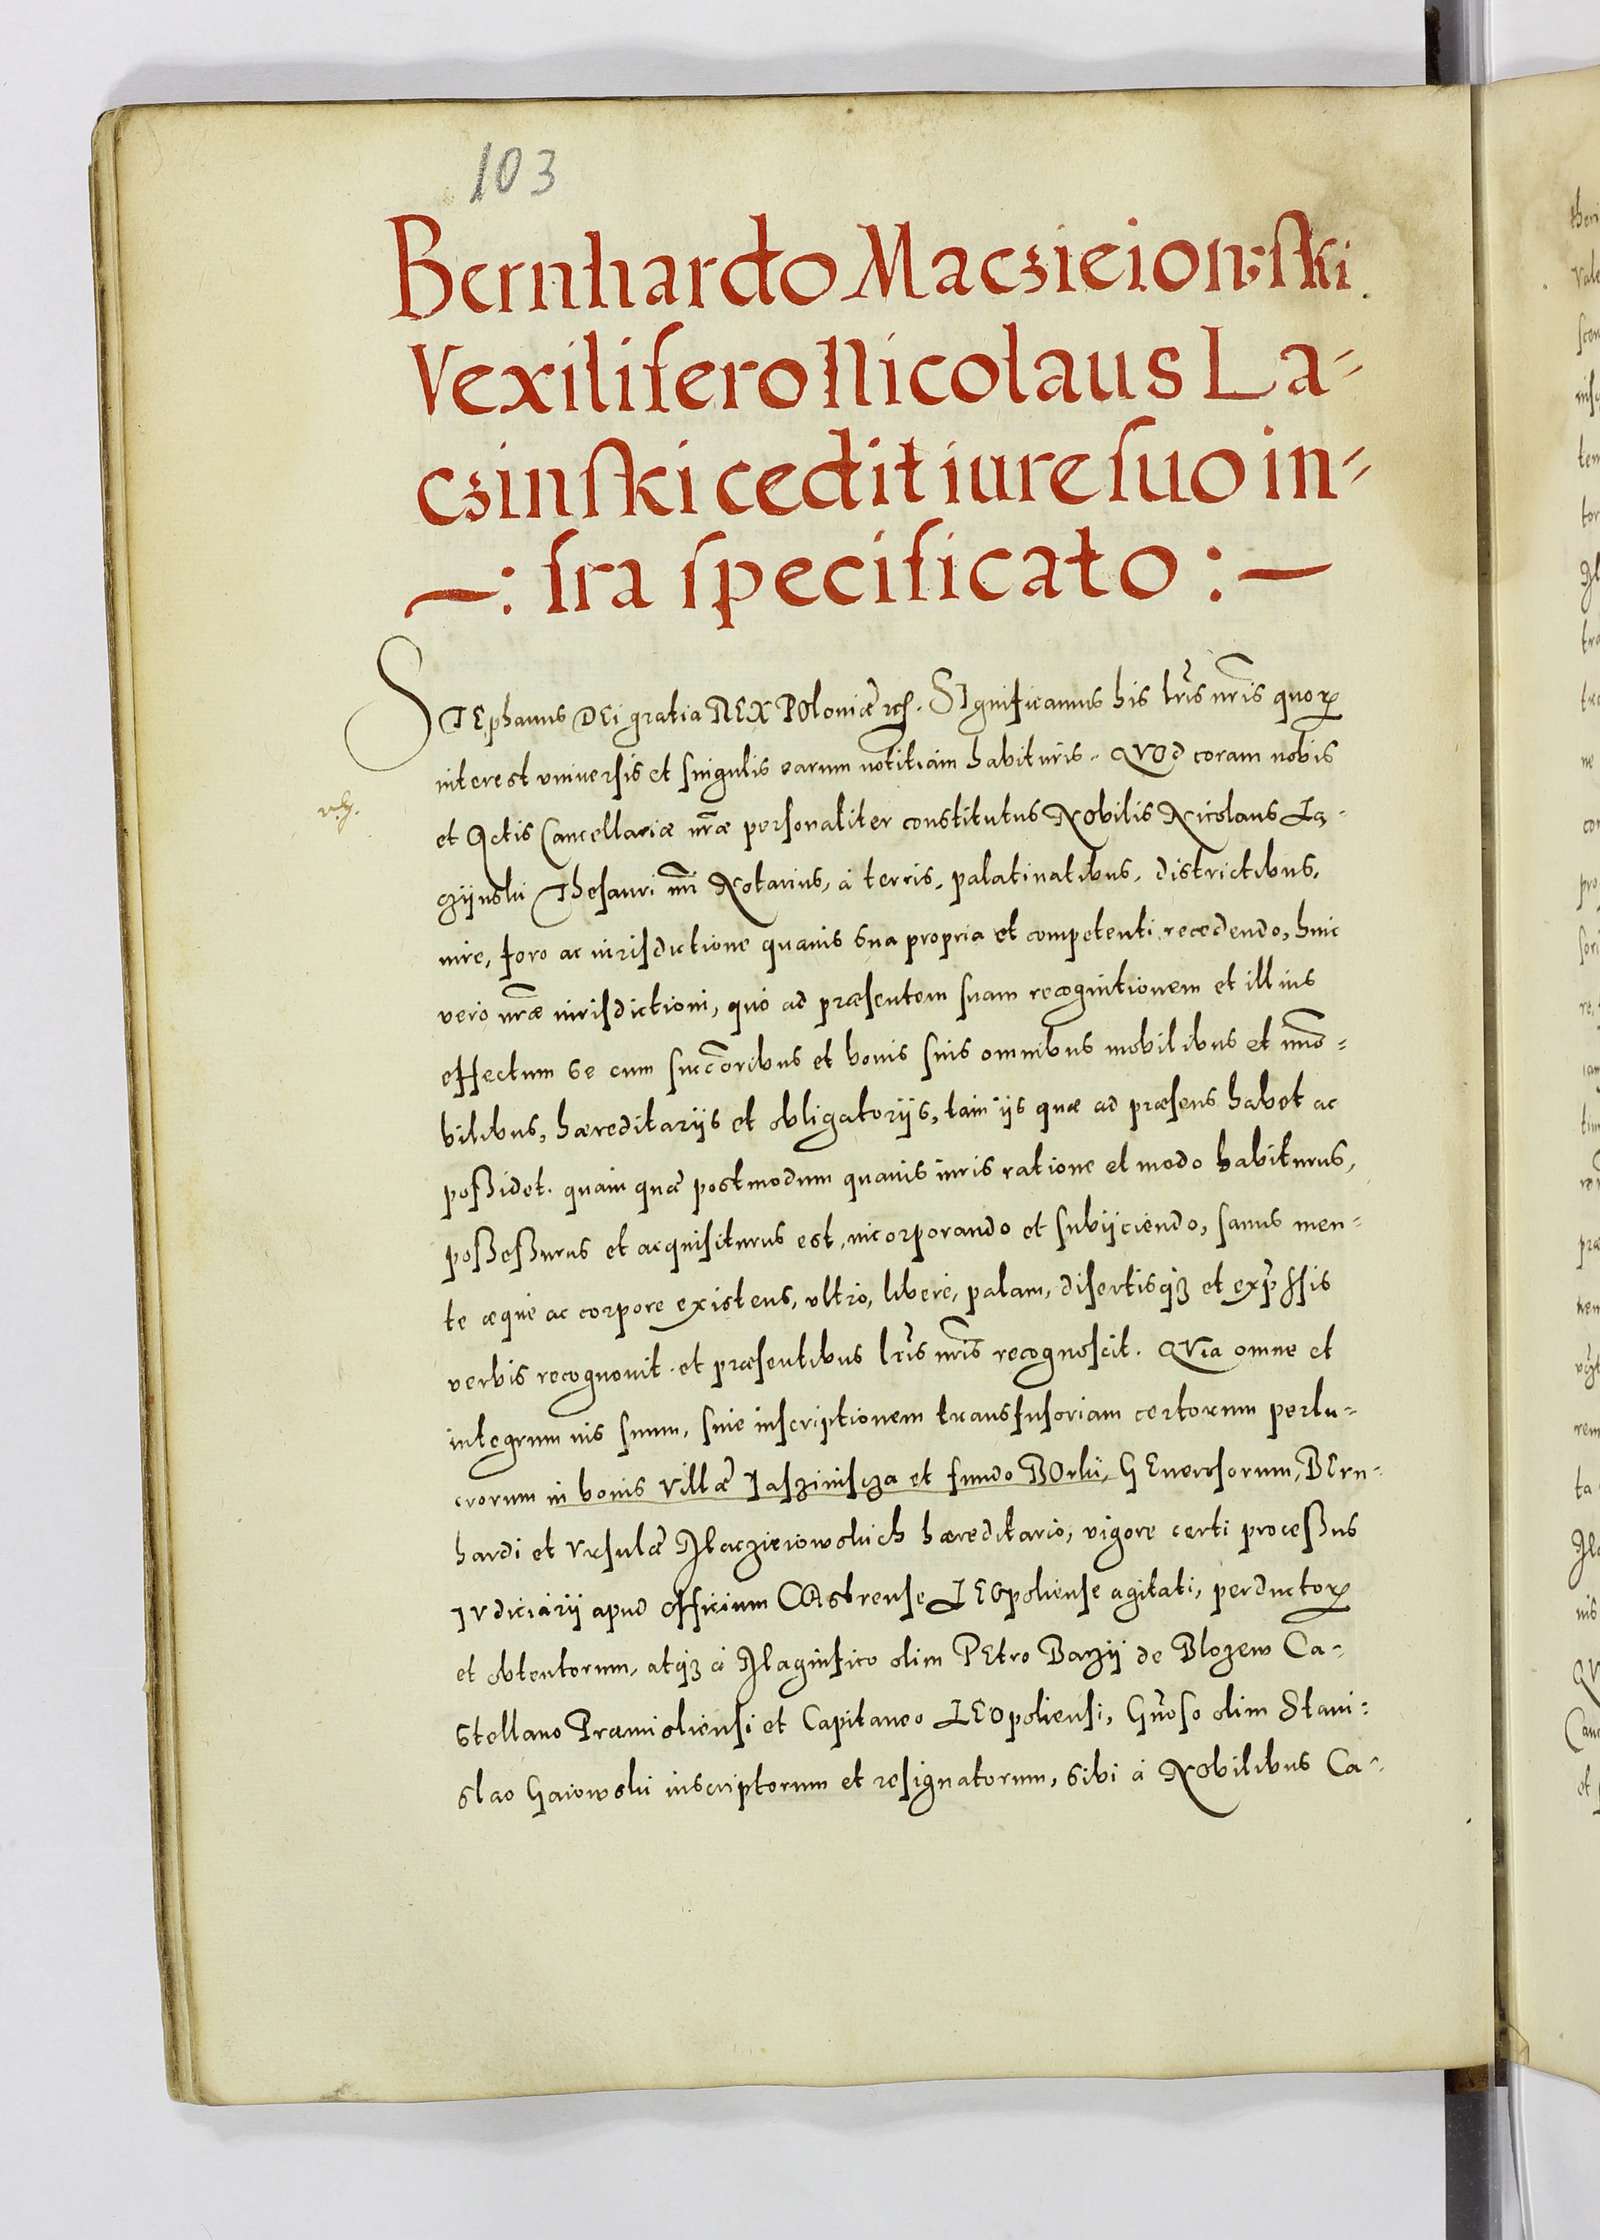 103
Bernhardo Maczieiowski
Vexilifero Nicolaus La-
czinski cedit iure suo in-
—: fra specificato :—
STEphanus DEi gratia REX POloniæ etc. SIgnificamus his lris nris quorum
interest vniuersis et singulis earum notitiam habituris. QVOd coram nobis
et Actis Cancellariæ nræ personaliter constitutus NObilis Nicolaus La-
czijnski Thesauri nri Notarius, à terris, palatinatibus, districtibus,
iure, foro ac iurisdictione quauis sua propria et competenti recedendo, huic
vero nræ iurisdictioni, quó ad præsentem suam recognitionem et illius
effectum se cum succoribus et bonis suis omnibus mobilibus et immo-
bilibus, hæreditarijs et obligatorijs, tam ijs quæ ad præsens habet ac
possidet. quam quæ postmodum quauis iuris ratione et modo habiturus,
possessurus et acquisiturus est, incorporando et subijciendo, sanus men-
te æque ac corpore existens, vltró, liberé, palam, disertisq3 et exprssis
verbis recognouit. et præsentibus lris nris recognoscit. QVia omne et
integrum ius suum, siue inscriptionem transfusoriam certorum perlu-
crorum in bonis Villæ Jasziniscza et fundo BOrki, GEnerosorum, BErn-
hardi et Vrsulæ Maczieiowskich hæreditario, vigore certi processus
IVdiciarij apud officium CAstrense LEOpoliense agitati, perductorum
et obtentorum, atq3 á Magnifico olim PEtro Barzij de Blozew Ca-
stellano Præmisliensi et Capitaneo LEOpoliensi, Gnoso olim Stani-
slao Gaiowski inscriptorum et resignatorum, sibi á NObilibus Ca-